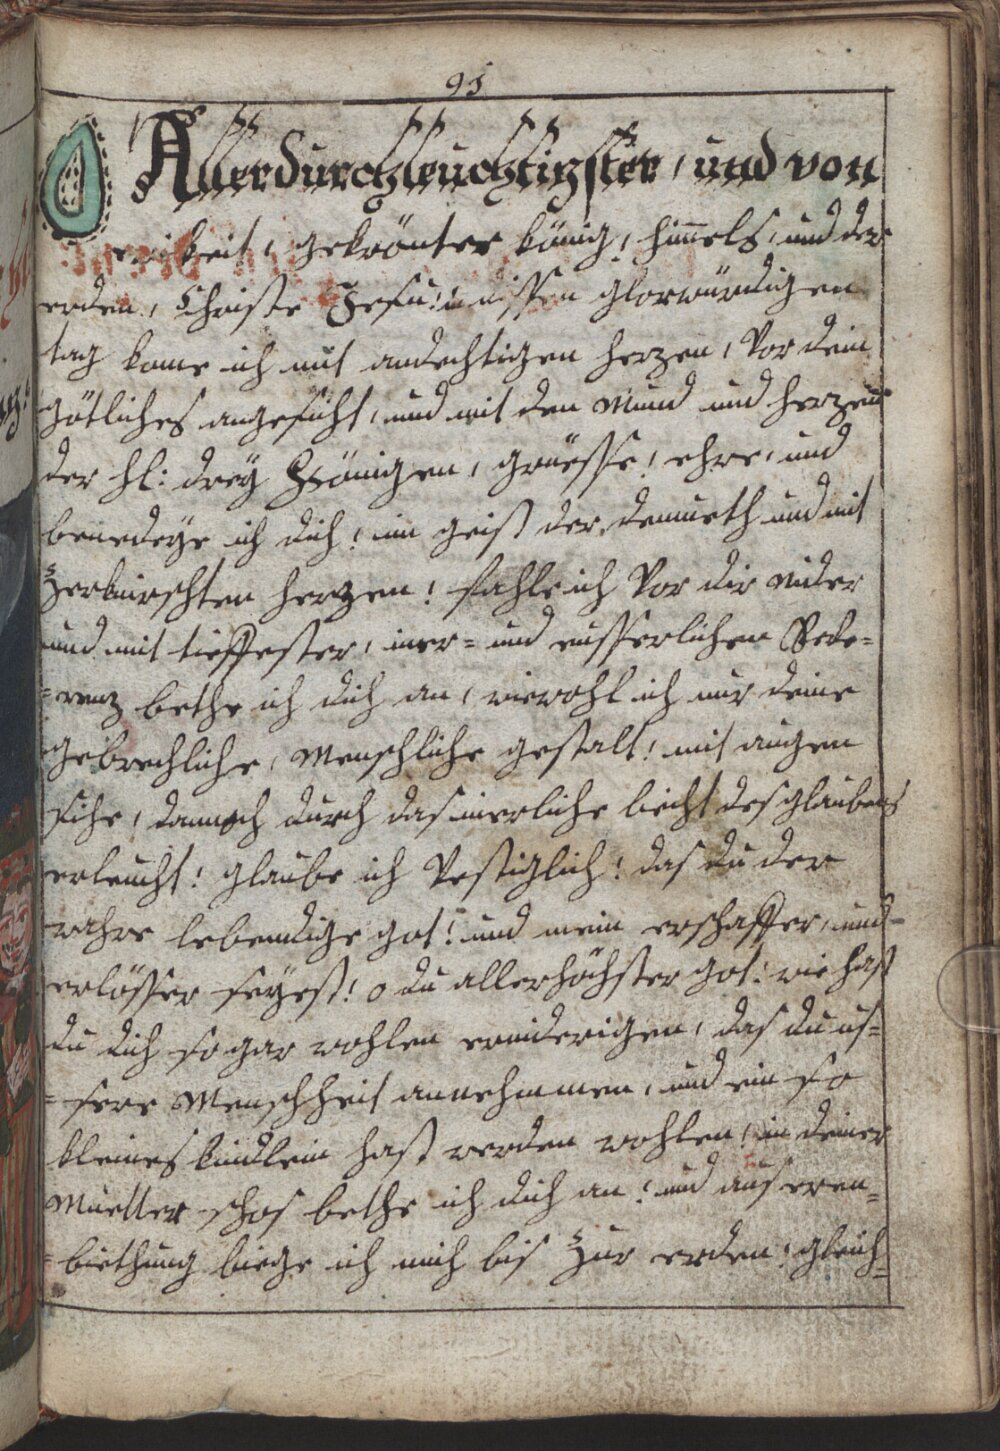 95
O Allerdurchleuchtigster, und von
ewikeit, gekrönter könig, himels, und der
erden, Christe Jesu! in dissen glorwürdigen
tag kome ich mit andechtigen herzen, Vor dein
götliches angesicht, und mit den Mund und herzen
der hl: dreÿ Königen, grüesse, ehre, und
benedeye ich dich! im geist der demueth und mit
Zerknirschten herzen! fahle ich Vor dir nider
und mit tieffester, iner= und eusserlichen Reve=
=renz bethe ich dich an, wiewohl ich nur deine
gebrechliche, Menschliche gestalt! mit augen
sihe, dannoch durch das inerliche liecht des glaubens
erleucht! glaube ich Vestiglich! das du der
wahre lebendige got! und mein erschaffer, und
erlösser seÿest! o du allerhöchster got! wie hast
du dich so gar wohlen erniderigen, das du un=
=sere Menschheit annehmmen, und ein so
kleines kindlein hast werden wohlen, in deiner
Muetter schos bethe ich dich an! und aus eren=
=biethung biege ich mich bis Zur erden! gleich=